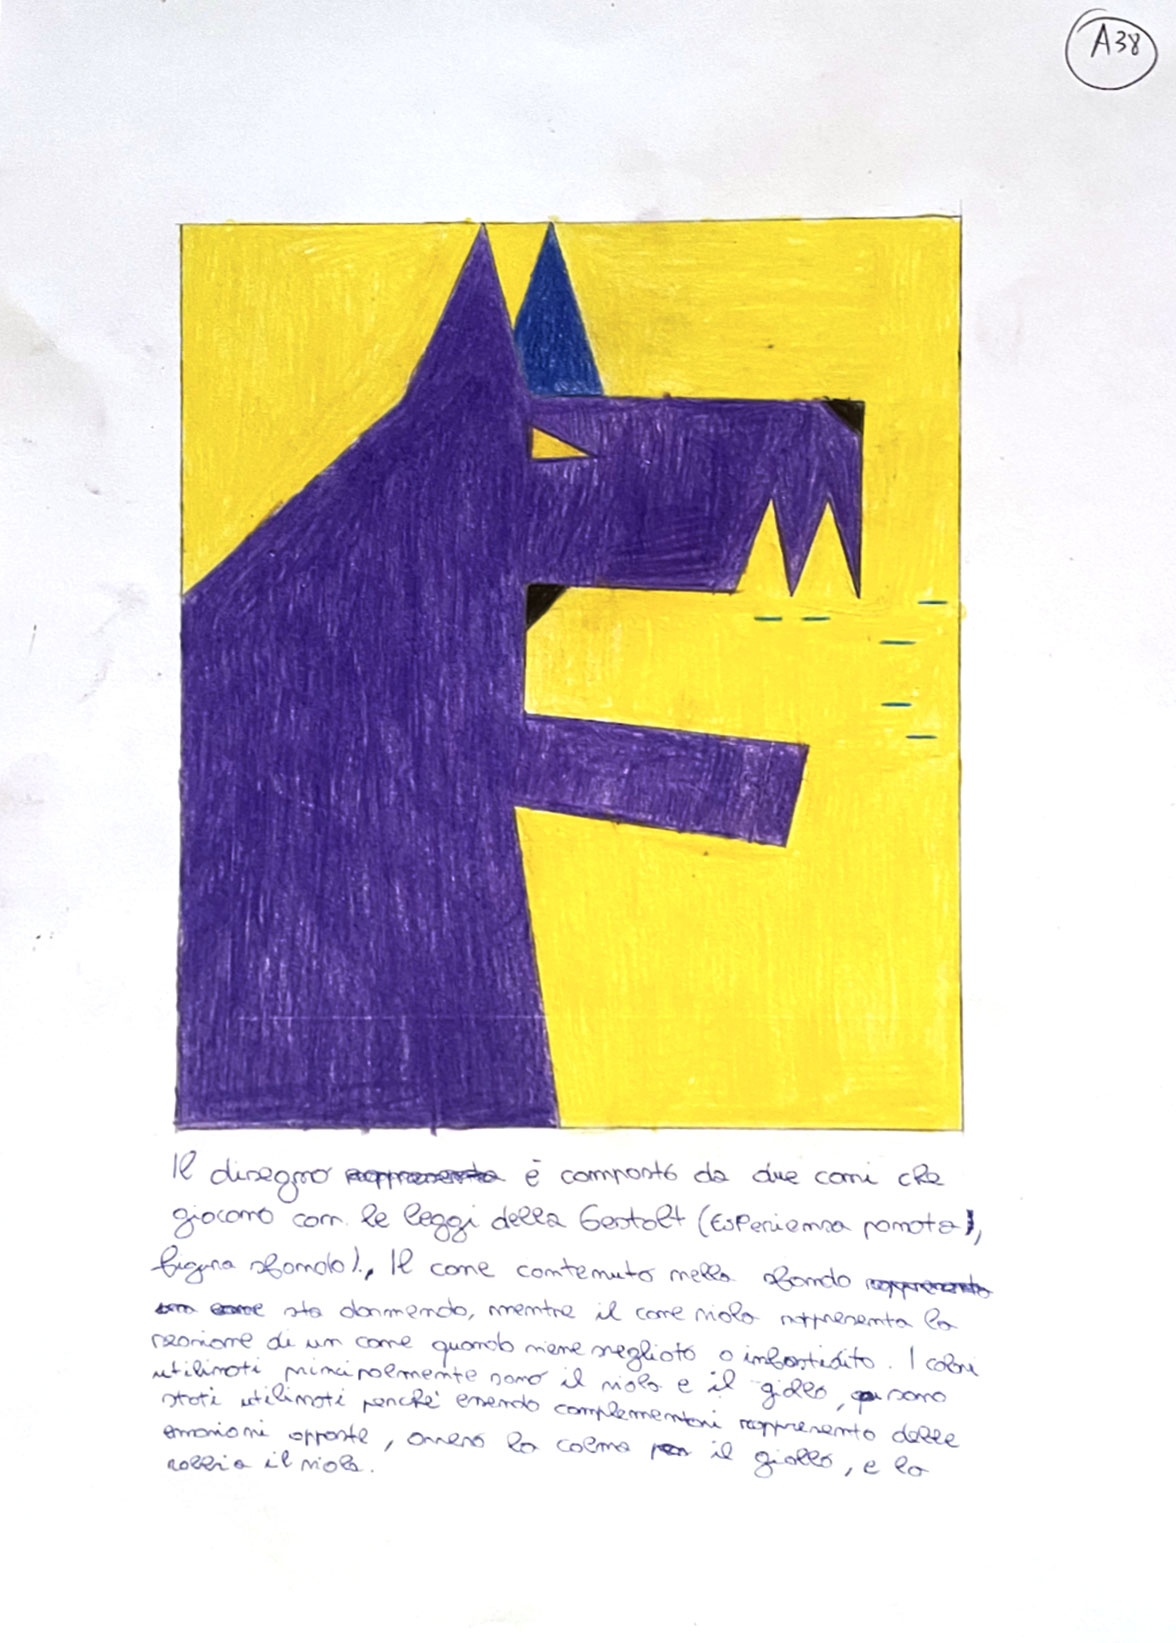 A38
Il disegno rappresenta è composto da due cani che
giocano con le leggi della Gestalt (Esperienza passata),
figura sfondo). Il cane contenuto nello sfondo rappresenta
un cane sta dormendo, mentre il cane viola rappresenta la
reazione di un cane quando viene svegliato o infastidito. I colori
utilizzati principalmente sono il viola e il giallo, sono
stati utilizzati perché essendo complementari rappresento delle
emozioni opposte, ovvero la calma per il giallo, e la
rabbia il viola.